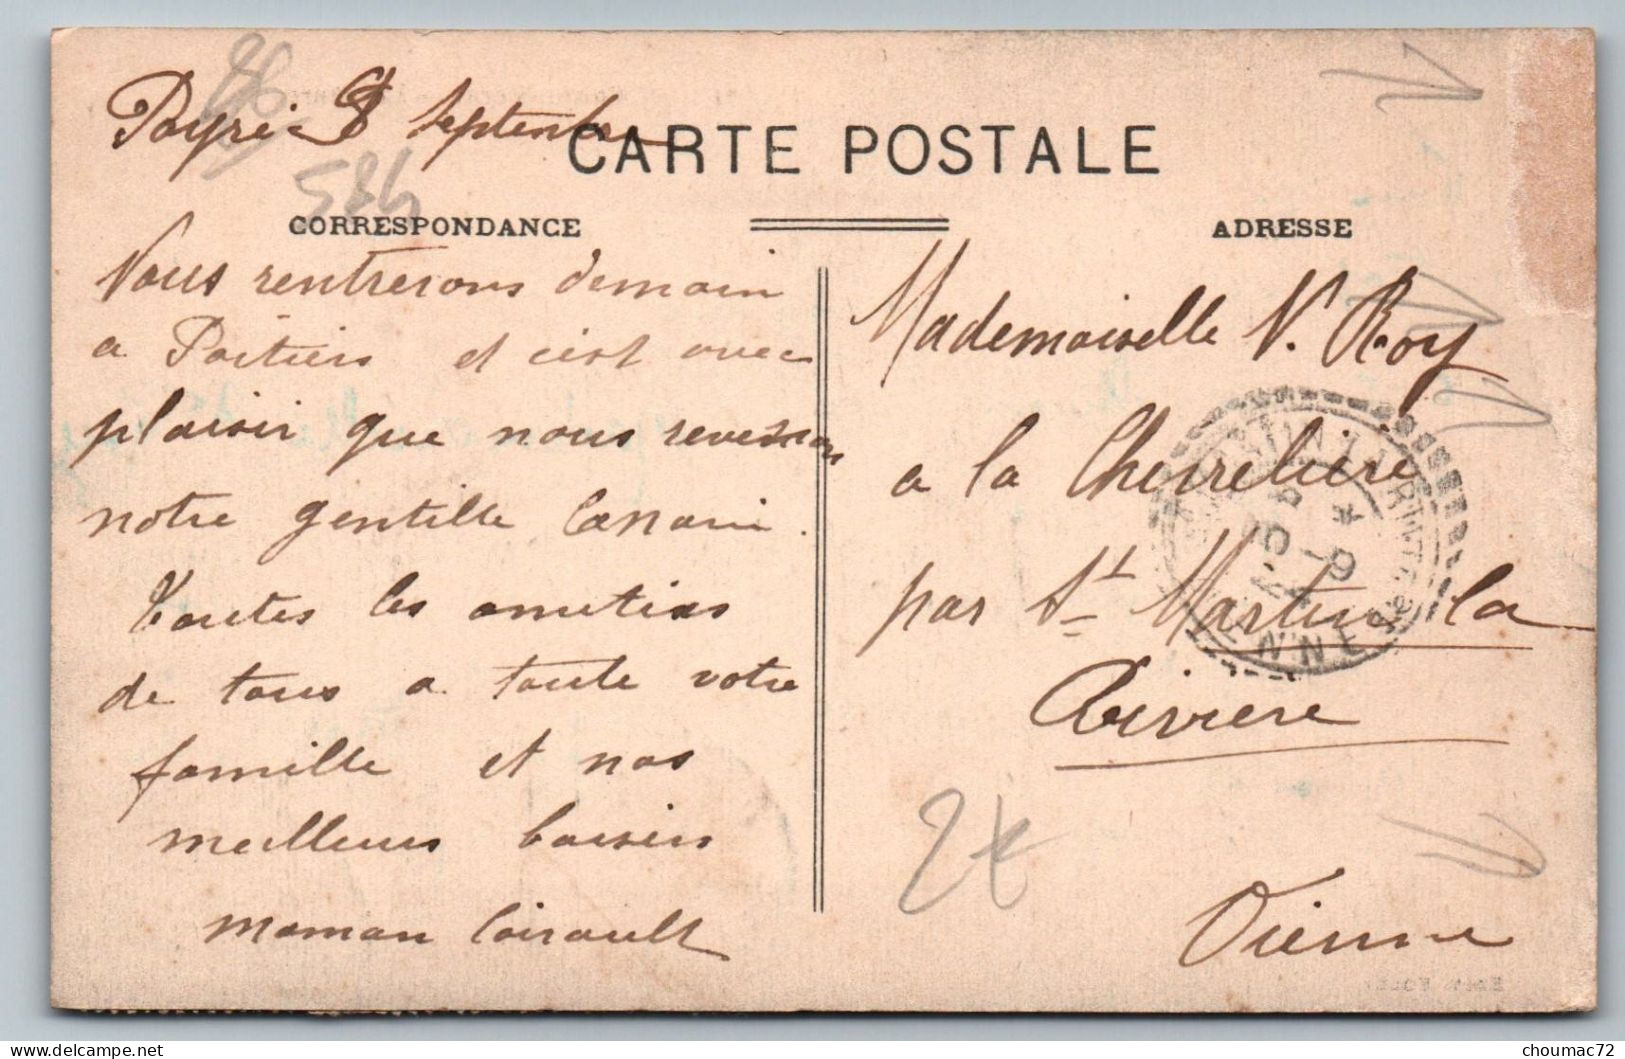 Payré 8 Septembre
86
584
CARTE POSTALE
CORRESPONDANCE
ADRESSE
Nous rentrerons demain
a Poitiers et c'est avec
plaisir que nous reverrons
notre gentille Canari.
Toutes les amities
de tous a toute votre
famille et nos
meilleurs baisers
maman Coirault
Mademoiselle V. Roy
a la Chevreliere
par St Martin la
Riviere
Vienne
2€
choumac72